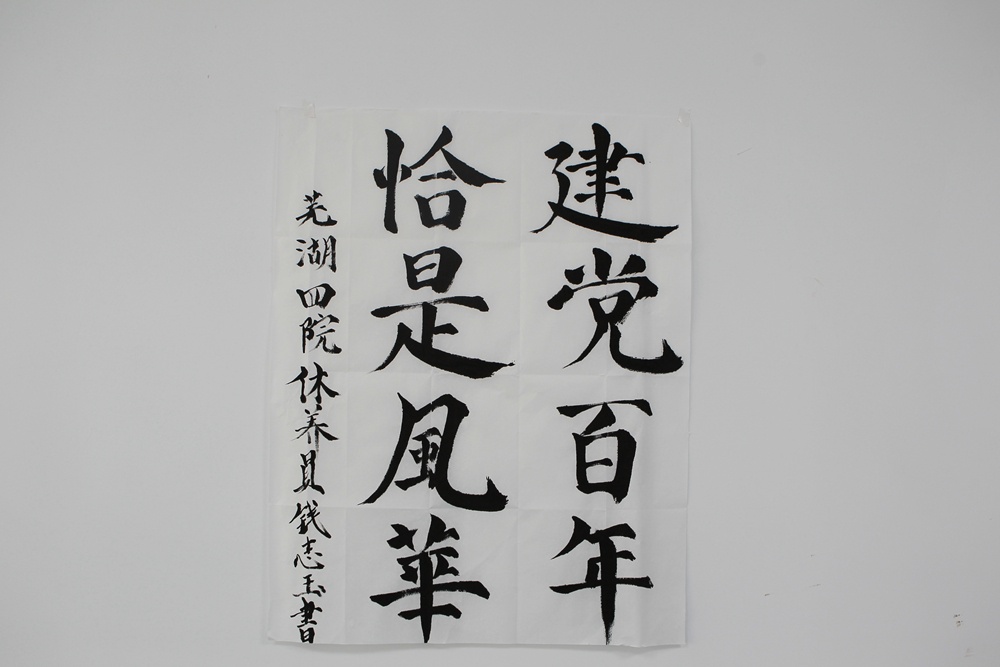 建党百年
恰是風華
芜湖四院休养員钱志玉書